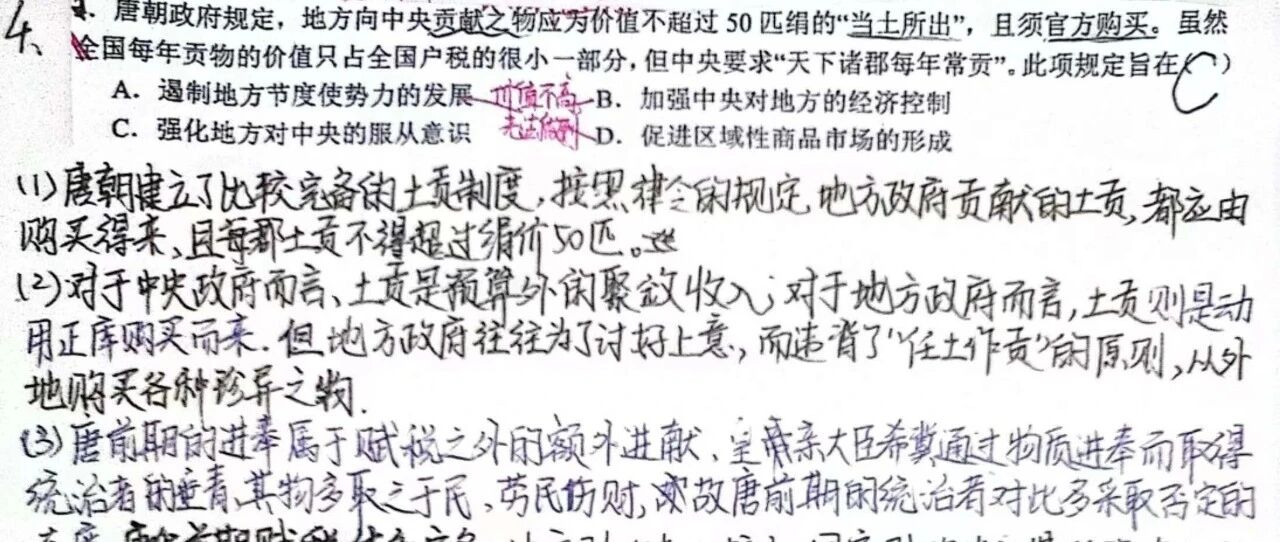 4、 4. 唐朝政府规定，地方向中央贡献之物应为价值不超过 50 匹绢的“当土所出”，且须官方购买。虽然
全国每年贡物的价值只占全国户税的很小一部分，但中央要求“天下诸郡每年常贡”。此项规定旨在（C）
A．遏制地方节度使势力的发展 价值不高 B．加强中央对地方的经济控制
C．强化地方对中央的服从意识 无法做到 D．促进区域性商品市场的形成
(1)唐朝建立了比较完备的土贡制度，按照律令的规定，地方政府贡献的土贡，都应由
购买得来、且每郡土贡不得超过绢价50匹。
(2)对于中央政府而言、土贡是预算外的聚敛收入；对于地方政府而言，土贡则是动
用正库购买而来．但地方政府往往为了讨好上意，而违背了“任土作贡”的原则，从外
地购买各种珍异之物．
(3)唐前期的进奉属于赋税之外的额外进献、皇亲大臣希冀通过物质进奉而取得
统治者的垂青，其物多取之于民、劳民伤财，故唐前期的统治者对此多采取否定的